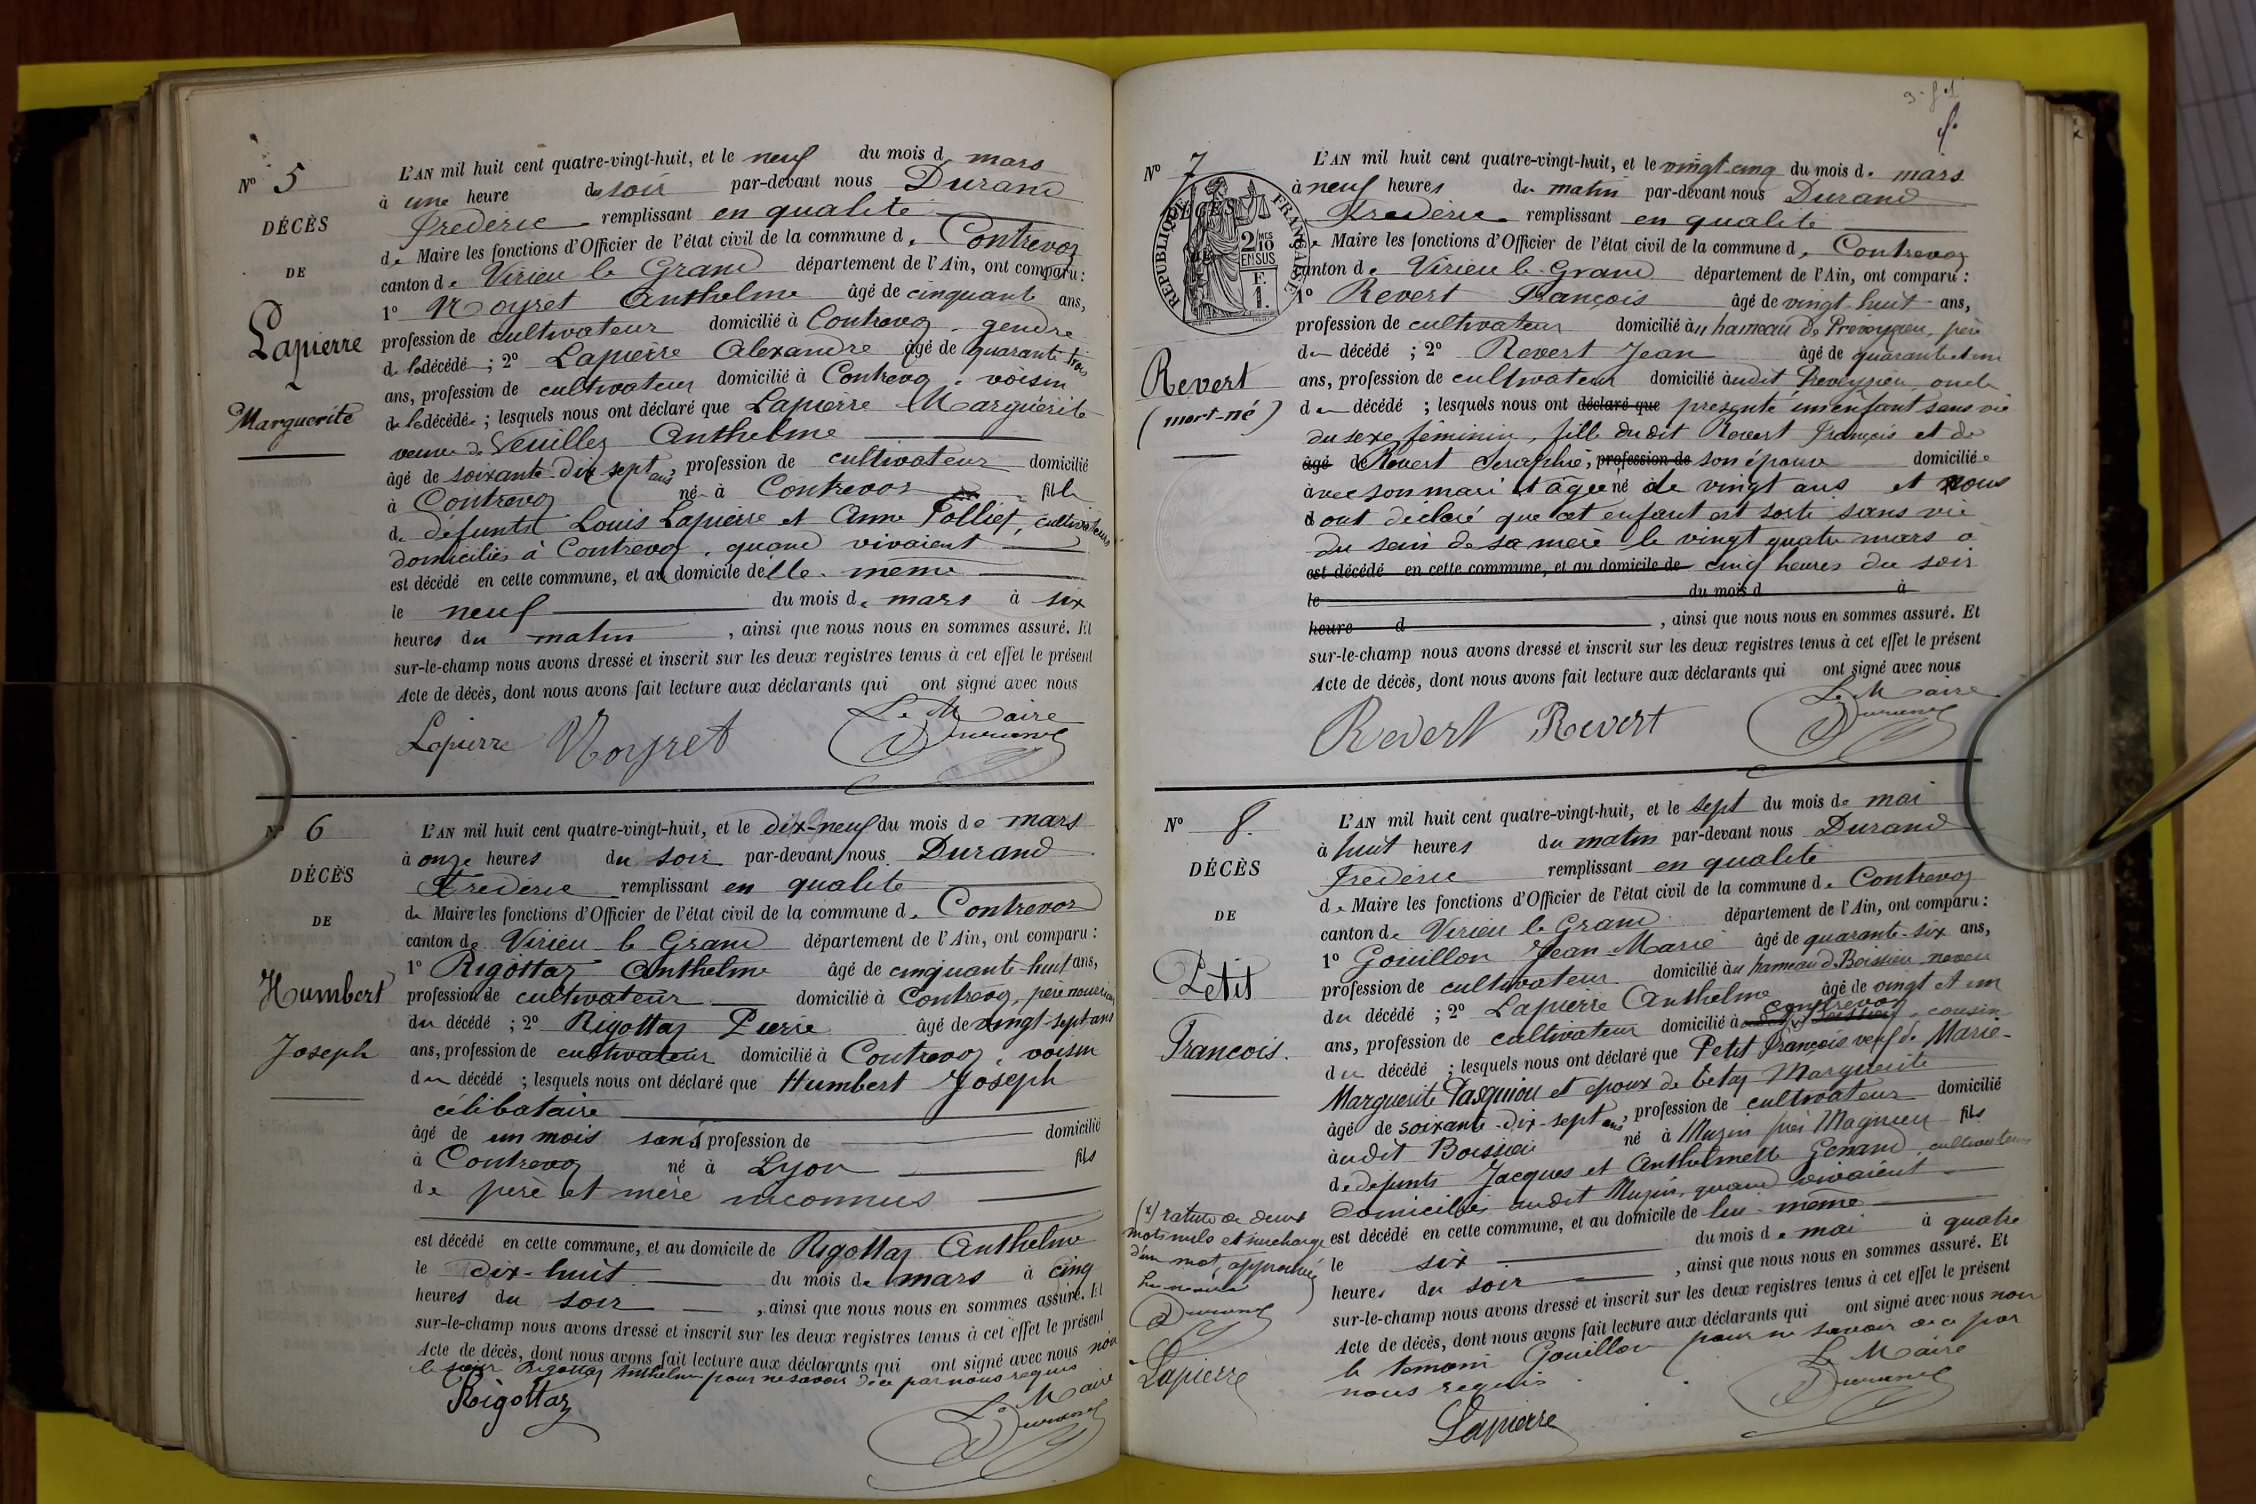 N° 5
DÉCÈS
DE
Lapierre
Marguerite
L'AN mil huit cent quatre-vingt-huit, et le neuf du mois de mars
à une heure du soir par-devant nous Durand
Frédéric remplissant en qualité
de Maire les fonctions d'Officier de l'état civil de la commune de Contrevoz
canton de Virieu le Grand département de l'Ain, ont comparu :
1° Moyret Anthelme âgé de cinquante ans,
profession de cultivateur domicilié à Contrevoz, gendre
de la décédée ; 2° Lapierre Alexandre âgé de quarante trois
ans, profession de cultivateur domicilié à Contrevoz, voisin
de la décédée ; lesquels nous ont déclaré que Lapierre Marguerite
veuve de Veuillez Anthelme
âgé de soixante-dix sept ans, profession de cultivateur domicilié
à Contrevoz né à Contrevoz fille
de défunts Louis Lapierre et Anne Polliet, cultivateurs
domiciliés à Contrevoz, quand vivaient
est décédé en cette commune, et au domicile delle-meme
le neuf du mois de mars à six
heures du matin, ainsi que nous nous en sommes assuré. Et
sur-le-champ nous avons dressé et inscrit sur les deux registres tenus à cet effet le présent
Acte de décès, dont nous avons fait lecture aux déclarants qui ont signé avec nous
Le Maire
Lapierre Moyret Durand
N° 6
DÉCÈS
DE
Humbert
Joseph
L'AN mil huit cent quatre-vingt-huit, et le dix-neuf du mois de mars
à onze heures du soir par-devant nous Durand
Frédéric remplissant en qualité
de Maire les fonctions d'Officier de l'état civil de la commune de Contrevoz
canton de Virieu le Grand département de l'Ain, ont comparu :
1° Rigottaz Anthelme âgé de cinquante-huit ans,
profession de cultivateur domicilié à Contrevoz, père nourricier
du décédé ; 2° Rigottaz Pierre âgé de vingt-sept ans
ans, profession de cultivateur domicilié à Contrevoz, voisin
du décédé ; lesquels nous ont déclaré que Humbert Joseph
célibataire
âgé de un mois sans profession de domicilié
à Contrevoz né à Lyon fils
de père et mère inconnus
est décédé en cette commune, et au domicile de Rigottaz Anthelme
le dix-huit du mois de mars à cinq
heures du soir, ainsi que nous nous en sommes assuré. Et
sur-le-champ nous avons dressé et inscrit sur les deux registres tenus à cet effet le présent
Acte de décès, dont nous avons fait lecture aux déclarants qui ont signé avec nous non
le sieur Rigottaz Anthelme pour ne savoir de ce par nous requis
Rigottaz Le Maire
Durand
N° 7
RÉPUBLIQUE FRANÇAISE
2/10 MES
EN SUS
F.
1.
Revert
(mort-né)
L'AN mil huit cent quatre-vingt-huit, et le vingt-cinq du mois de mars
à neuf heures du matin par-devant nous Durand
Frédéric remplissant en qualité
de Maire les fonctions d'Officier de l'état civil de la commune de Contrevoz
canton de Virieu le Grand département de l'Ain, ont comparu :
1° Revert François âgé de vingt huit ans,
profession de cultivateur domicilié au hameau de Preveyzieu, père
du décédé ; 2° Revert Jean âgé de quarante et un
ans, profession de cultivateur domicilié audit Preveyzieu, oncle
du décédé ; lesquels nous ont déclaré que présenté un enfant sans vie
du sexe féminin, fille dudit Revert François et de
âgé de Revert Séraphie, profession de son épouse domiciliée
avec son mari et âgée né de vingt ans et nous
d ont déclaré que cet enfant est sorti sans vie
du sein de sa mère le vingt quatre mars à
est décédé en cette commune, et au domicile de cinq heures du soir
le du mois d à
heure d, ainsi que nous nous en sommes assuré. Et
sur-le-champ nous avons dressé et inscrit sur les deux registres tenus à cet effet le présent
Acte de décès, dont nous avons fait lecture aux déclarants qui ont signé avec nous
Le Maire
Revert Revert Durand
N° 8.
DÉCÈS
DE
Petit
François.
L'AN mil huit cent quatre-vingt-huit, et le sept du mois de mai
à huit heures du matin par-devant nous Durand
Frédéric remplissant en qualité
de Maire les fonctions d'Officier de l'état civil de la commune de Contrevoz
canton de Virieu le Grand département de l'Ain, ont comparu :
1° Gouillon Jean-Marie âgé de quarante-six ans,
profession de cultivateur domicilié au hameau de Boissieu neveu
du décédé ; 2° Lapierre Anthelme âgé de vingt et un
ans, profession de cultivateur domicilié à Contrevoz, cousin
du décédé ; lesquels nous ont déclaré que Petit François veuf de Marie-
Marguerite Pasquiou et époux de Betaz Marguerite
âgé de soixante-dix-sept ans, profession de cultivateur domicilié
audit Boissieu né à Muzin près Magnieu fils
de défunts Jacques et Anthelmette Genand, cultivateurs
domiciliés audit Muzin, quand vivaient
est décédé en cette commune, et au domicile de lui-même
le six du mois de mai à quatre
heures du soir, ainsi que nous nous en sommes assuré. Et
sur-le-champ nous avons dressé et inscrit sur les deux registres tenus à cet effet le présent
Acte de décès, dont nous avons fait lecture aux déclarants qui ont signé avec nous non
le témoin Gouillon pour ne savoir de ce par
nous requis
Le Maire
Lapierre Durand
(x) rature de deux
mots nuls et surcharge
d'un mot, approuvés
Durand
Lapierre